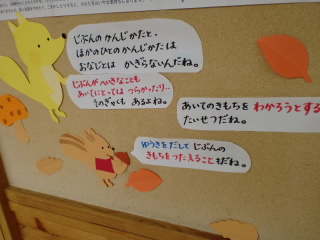 じぶんの かんじかたと、
ほかのひとの かんじかたは
おなじとは かぎらないんだね。
じぶんが へいきなことも
あいてにとっては つらかったり…
そのぎゃくも あるよね。
あいてのきもちを わかろうとする
たいせつだね。
ゆうきをだして じぶんの
きもちを つたえることもだね。